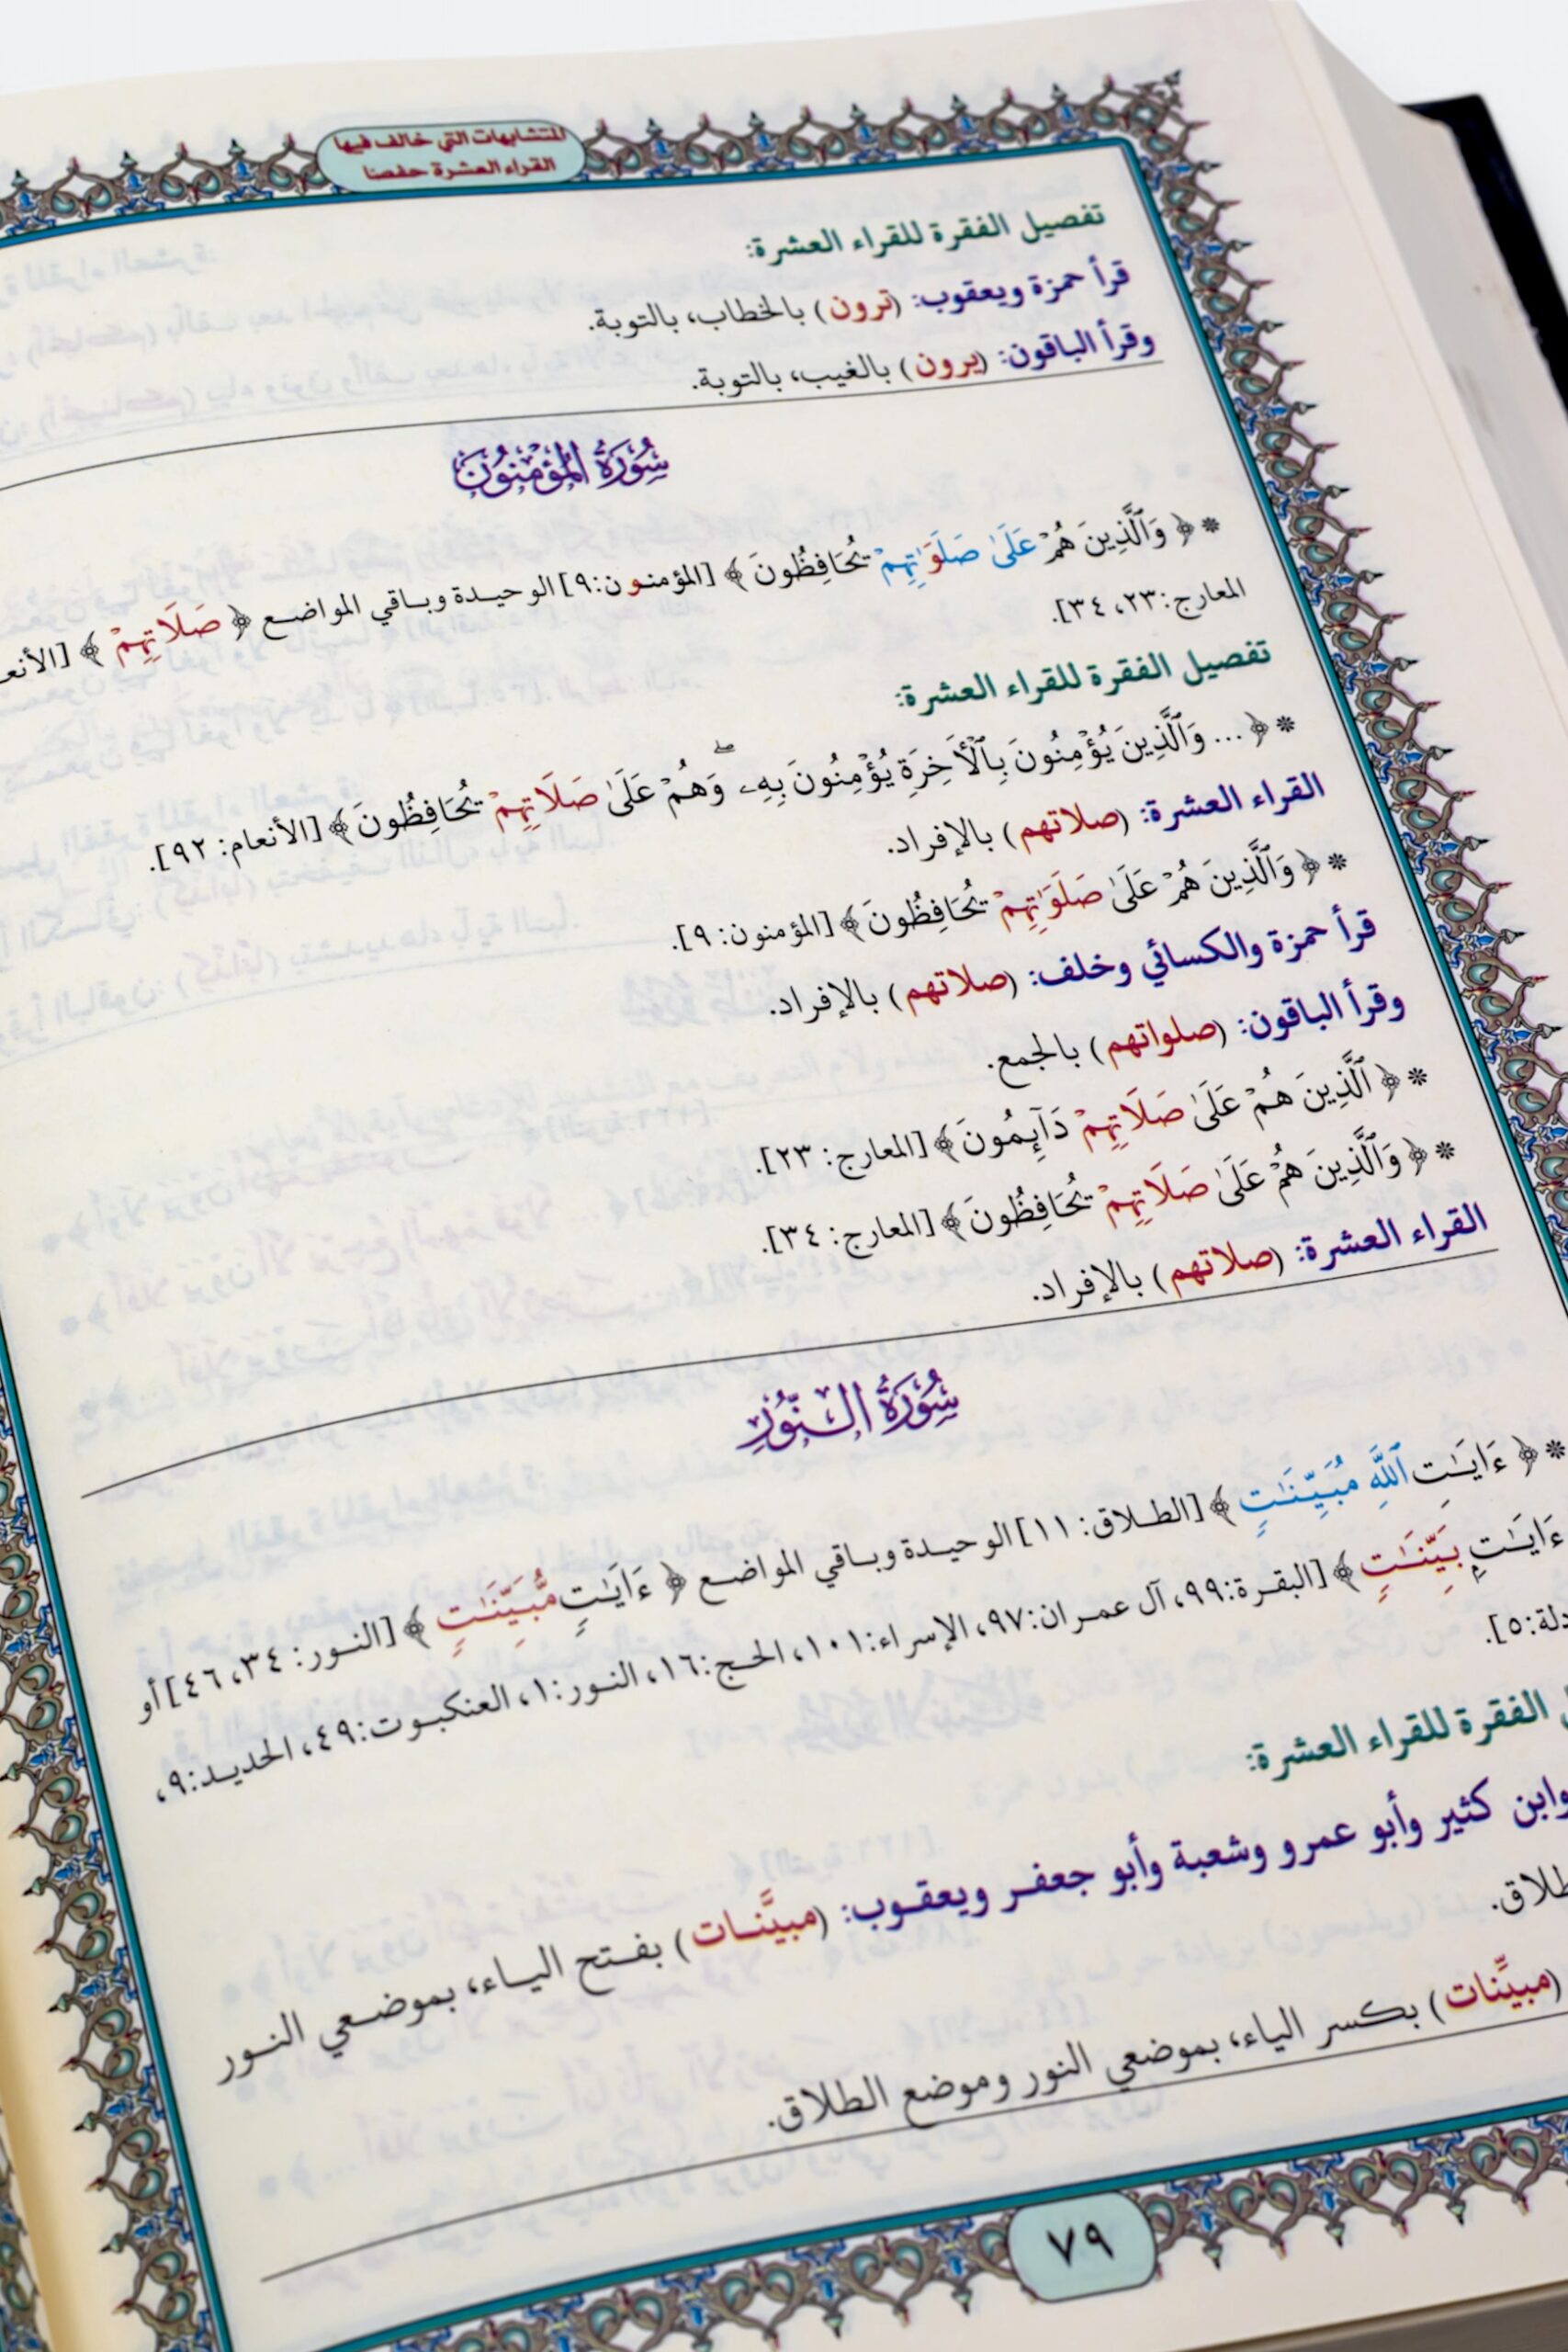 المتشابهات التي خالف فيها
القراء العشرة حفصا
تفصيل الفقرة للقراء العشرة:
قرأ حمزة ويعقوب: (ترون) بالخطاب، بالتوبة.
وقرأ الباقون: (يرون) بالغيب، بالتوبة.
سُورَةُ المُؤْمِنُونَ
* ﴿ وَٱلَّذِينَ هُمۡ عَلَىٰ صَلَوَٰتِهِمۡ يُحَافِظُونَ ﴾ [المؤمنون:٩] الوحيدة وباقي المواضع ﴿ صَلَاتِهِمۡ ﴾
المعارج:٢٣، ٣٤].
تفصيل الفقرة للقراء العشرة:
* ﴿ ... وَٱلَّذِينَ يُؤۡمِنُونَ بِٱلۡأٓخِرَةِ يُؤۡمِنُونَ بِهِۦۖ وَهُمۡ عَلَىٰ صَلَاتِهِمۡ يُحَافِظُونَ ﴾ [الأنعام: ٩٢].
القراء العشرة: (صلاتهم) بالإفراد.
* ﴿ وَٱلَّذِينَ هُمۡ عَلَىٰ صَلَوَٰتِهِمۡ يُحَافِظُونَ ﴾ [المؤمنون: ٩].
قرأ حمزة والكسائي وخلف: (صلاتهم) بالإفراد.
وقرأ الباقون: (صلواتهم) بالجمع.
* ﴿ ٱلَّذِينَ هُمۡ عَلَىٰ صَلَاتِهِمۡ دَآئِمُونَ ﴾ [المعارج: ٢٣].
* ﴿ وَٱلَّذِينَ هُمۡ عَلَىٰ صَلَاتِهِمۡ يُحَافِظُونَ ﴾ [المعارج: ٣٤].
القراء العشرة: (صلاتهم) بالإفراد.
سُورَةُ النُّورِ
* ﴿ ءَايَٰتِ ٱللَّهِ مُبَيِّنَٰتٖ ﴾ [الطلاق: ١١] الوحيدة وباقي المواضع ﴿ ءَايَٰتٖ مُّبَيِّنَٰتٖ ﴾ [النور: ٣٤، ٤٦] أو
ءَايَٰتِۭ بَيِّنَٰتٖ ﴾ [البقرة:٩٩، آل عمران:٩٧، الإسراء:١٠١، الحج:١٦، النور:١، العنكبوت:٤٩، الحديد:٩،
٥].
الفقرة للقراء العشرة:
وابن كثير وأبو عمرو وشعبة وأبو جعفر ويعقوب: (مبيَّنات) بفتح الياء، بموضعي النور
(مبيِّنات) بكسر الياء، بموضعي النور وموضع الطلاق.
٧٩